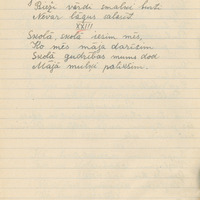 Bieži vārdi smalki hurti
Nevar lāgus salasīt.
XXIII
Skolā, skolā iesim mēs,
Ko mēs mājā darīsim
Skolā gudrības mums dod
Mājā muļķi paliksim.